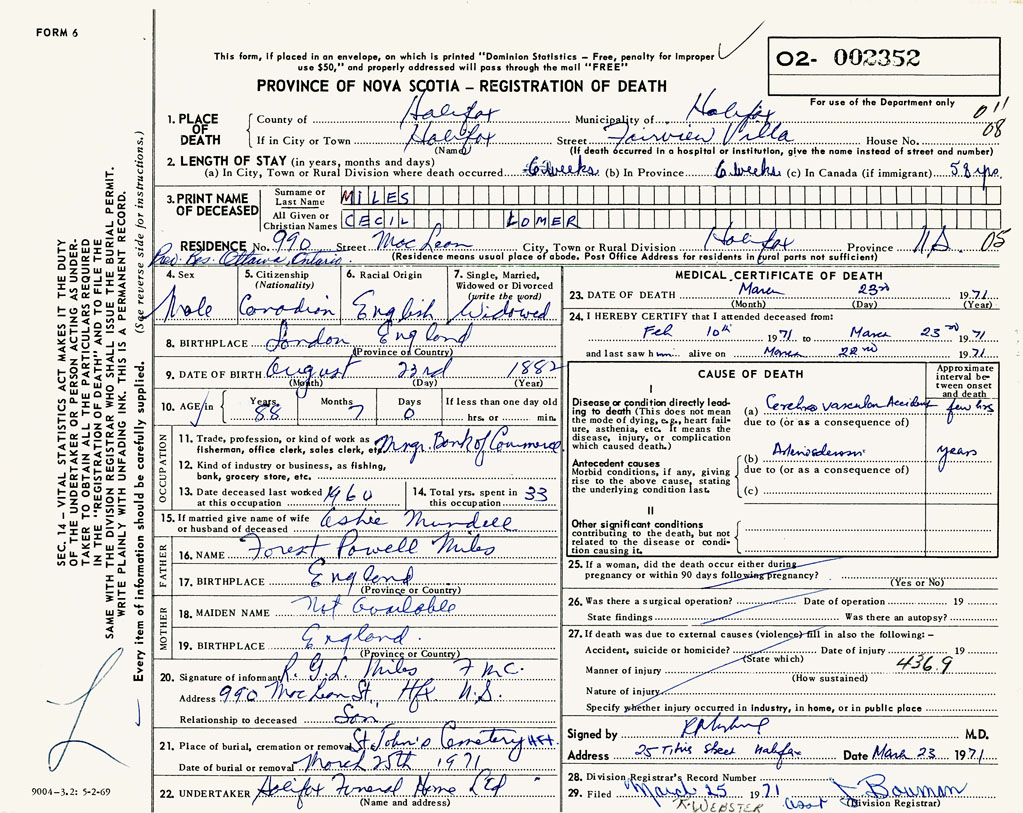 FORM 6
This form, if placed in an envelope, on which is printed "Dominion Statistics — Free, penalty for improper
use $50," and properly addressed will pass through the mail "FREE"
02- 002352
PROVINCE OF NOVA SCOTIA — REGISTRATION OF DEATH
For use of the Department only
1. PLACE OF DEATH
County of Halifax Municipality of Halifax 011
If in City or Town Halifax Street Fairview Villa House No. 08
(Name) (If death occurred in a hospital or institution, give the name instead of street and number)
2. LENGTH OF STAY (in years, months and days)
(a) In City, Town or Rural Division where death occurred 6 weeks (b) In Province 6 weeks (c) In Canada (if immigrant) 58 yrs.
3. PRINT NAME OF DECEASED
Surname or Last Name MILES
All Given or Christian Names CECIL LOMER
RESIDENCE No. 990 Street MacLean City, Town or Rural Division Halifax Province N.S. 05
(Residence means usual place of abode. Post Office Address for residents in rural parts not sufficient)
Prev. Res. Ottawa, Ontario.
4. Sex Male
5. Citizenship (Nationality) Canadian
6. Racial Origin English
7. Single, Married, Widowed or Divorced (write the word) Widowed
8. BIRTHPLACE London England
(Province of Country)
9. DATE OF BIRTH August 23rd 1882
(Month) (Day) (Year)
10. AGE in Years 88 Months 7 Days 0 If less than one day old hrs. or min.
OCCUPATION
11. Trade, profession, or kind of work as fisherman, office clerk, sales clerk, etc. Mngr. Bank of Commerce
12. Kind of industry or business, as fishing, bank, grocery store, etc.
13. Date deceased last worked at this occupation 1960
14. Total yrs. spent in this occupation. 33
15. If married give name of wife or husband of deceased Mundell
FATHER
16. NAME Forest Powell Miles
17. BIRTHPLACE England
(Province or Country)
MOTHER
18. MAIDEN NAME Not available
19. BIRTHPLACE England.
(Province or Country)
20. Signature of informant R. G. L. Miles
Address 990 MacLean St. Hfx N.S.
Relationship to deceased Son
21. Place of burial, cremation or removal St. John's Cemetery Hfx.
Date of burial or removal March 25th 1971
22. UNDERTAKER Halifax Funeral Home Ltd
(Name and address)
MEDICAL CERTIFICATE OF DEATH
23. DATE OF DEATH March 23rd 1971
(Month) (Day) (Year)
24. I HEREBY CERTIFY that I attended deceased from:
Feb 10th 1971 to March 23rd 1971
and last saw him alive on March 22nd 1971
CAUSE OF DEATH
Approximate interval between onset and death
I
Disease or condition directly leading to death (This does not mean the mode of dying, e.g., heart failure, asthenia, etc. It means the disease, injury, or complication which caused death.)
(a) Cerebro vascular Accident few hrs
due to (or as a consequence of)
Antecedent causes
Morbid conditions, if any, giving rise to the above cause, stating the underlying condition last.
(b) years
due to (or as a consequence of)
(c)
II
Other significant conditions
contributing to the death, but not related to the disease or condition causing it.
25. If a woman, did the death occur either during pregnancy or within 90 days following pregnancy?
(Yes or No)
26. Was there a surgical operation? Date of operation 19
State findings Was there an autopsy?
27. If death was due to external causes (violence) fill in also the following: —
Accident, suicide or homicide? Date of injury 19
(State which)
Manner of injury 436.9
(How sustained)
Nature of injury
Specify whether injury occurred in industry, in home, or in public place
Signed by M.D.
Address 25 Titus Street Halifax Date March 23 1971.
28. Division Registrar's Record Number
29. Filed March 25 1971 Asst J. Bauman
K. WEBSTER (Division Registrar)
SEC. 14 — VITAL STATISTICS ACT MAKES IT THE DUTY
OF THE UNDERTAKER OR PERSON ACTING AS UNDER-
TAKER TO OBTAIN ALL THE PARTICULARS REQUIRED
IN THE "REGISTRATION OF DEATH" AND TO FILE THE
SAME WITH THE DIVISION REGISTRAR WHO SHALL ISSUE THE BURIAL PERMIT.
WRITE PLAINLY WITH UNFADING INK. THIS IS A PERMANENT RECORD.
Every item of information should be carefully supplied. (See reverse side for instructions.)
9004-3.2: 5-2-69